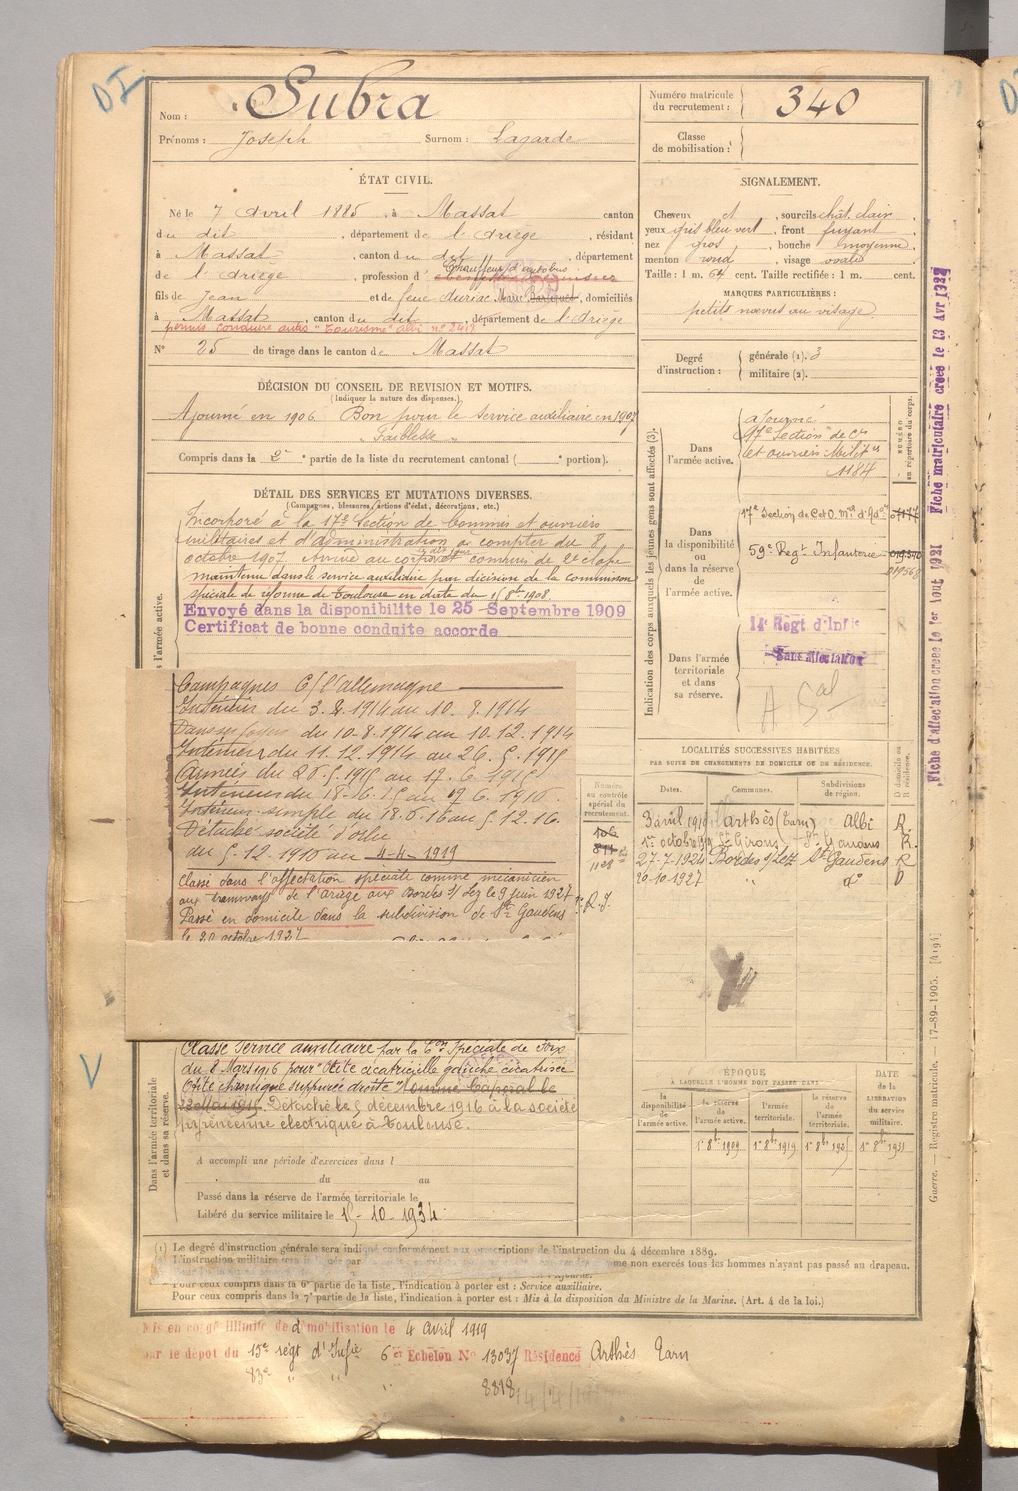 DI
Nom : Subra
Prénoms : Joseph Surnom : Lagarde
Numéro matricule du recrutement : 340
Classe de mobilisation :
ÉTAT CIVIL.
Né le 7 avril 1885, à Massat canton
du dit, département de l'Ariège, résidant
à Massat, canton du dit, département
de l'Ariège, profession d' Chauffeur d'autobus
fils de Jean et de feue Marie, domiciliés
à Massat, canton du dit, département de l'Ariège
permis conduire autos "Tourisme" Albi n° 2419
N° 25 de tirage dans le canton de Massat
SIGNALEMENT.
Cheveux et, sourcils chât. clair,
yeux gris bleu vert, front fuyant,
nez gros, bouche moyenne,
menton rond, visage ovale,
Taille : 1 m. 64 cent. Taille rectifiée : 1 m. cent.
MARQUES PARTICULIÈRES :
petits nœvus au visage.
Degré d'instruction : générale (1). 3
militaire (2).
DÉCISION DU CONSEIL DE REVISION ET MOTIFS.
(Indiquer la nature des dispenses.)
Ajourné en 1906. Bon pour le service auxiliaire en 1907
"Faiblesse"
Compris dans la 2e partie de la liste du recrutement cantonal ( e portion).
DÉTAIL DES SERVICES ET MUTATIONS DIVERSES.
(Campagnes, blessures, actions d'éclat, décorations, etc.)
Incorporé à la 17e Section de Commis et ouvriers
militaires et d'administration à compter du 8
octobre 1907. Arrivé au corps le dit jour commis de 2e classe
maintenu dans le service auxiliaire par décision de la commission
spéciale de réforme de Toulouse en date du 1r 8bre 1908
Envoyé dans la disponibilite le 25 Septembre 1909
Certificat de bonne conduite accorde
Campagnes C/ l'allemagne
Intérieur du 3.8.1914 au 10.8.1914
Dans ses foyers du 10-8.1914 au 10.12.1914
Intérieur du 11.12.1914 au 26.5.1915
Armées du
Intérieur du
Intérieur simple du 18.6.16 au 5.12.16.
Détaché société d'orlu
du 5.12.1916 au 4-4-1919
Classé dans l'affectation spéciale comme mécanicien
aux tramways de l'ariège aux Bordes s/ Lez le 9 juin 1927
Passé en domicile dans la subdivision de St Gaudens
le 20 octobre 1927
Classé Service auxiliaire par la Con Spéciale de Foix
du 8 Mars 1916 pour "Otite cicatricielle gauche cicatrisée
Otite chronique suppurée droite" Nommé Caporal le
22 Mai 1915. Détaché le 5 décembre 1916 à la société
pyrénéenne electrique à Toulouse.
A accompli une période d'exercices dans l
du au
Passé dans la réserve de l'armée territoriale le
Libéré du service militaire le 15-10-1934
V
Dans l'armée territoriale et dans sa réserve.
l'armée active.
Indication des corps auxquels les jeunes gens sont affectés (3).
Dans l'armée active.
ajourné
17e Section de Cis
et ouvriers Milit es
1184
NUMÉRO au répertoire du corps.
Dans la disponibilité ou dans la réserve de l'armée active.
17e Section de C et O. Mres d'Adon
59e Regt Infanterie
Dans l'armée territoriale et dans sa réserve.
14e Regt d'Infie
Sans affectation
LOCALITÉS SUCCESSIVES HABITÉES
PAR SUITE DE CHANGEMENTS DE DOMICILE OU DE RÉSIDENCE.
Numéro au contrôle spécial du recrutement.
Dates. Communes. Subdivisions de région. D domicile ou R résidence.
3 avril 1919 Arthès (Tarn) Albi R.
1er octobre 1919 St Girons St Gaudens R.
27-7-1924 Bordes s/ Lez St Gaudens R
20-10-1927 " do D
1128
ÉPOQUE
À LAQUELLE L'HOMME DOIT PASSER DANS
DATE de la LIBÉRATION du service militaire.
la disponibilité de l'armée active.
la réserve de l'armée active.
l'armée territoriale.
la réserve de l'armée territoriale.
1r 8bre 1909
1r 8bre 1919
(1) Le degré d'instruction générale sera indiqué conformément aux prescriptions de l'instruction du 4 décembre 1889.
L'instruction militaire sera indiquée par
me non exercés tous les hommes n'ayant pas passé au drapeau.
Pour ceux compris dans la 6e partie de la liste, l'indication à porter est : Service auxiliaire.
Pour ceux compris dans la 7e partie de la liste, l'indication à porter est : Mis à la disposition du Ministre de la Marine. (Art. 4 de la loi.)
Mis en congé illimité de démobilisation le 4 avril 1919
par le dépot du 15e régt d'Infie 6e Echelon N° 13037 Résidence Arthès Tarn
83e " "
8818
Fiche d'affectation creee le 1er Aout 1921 Fiche matriculaire creee le 13 Avr 1922
Guerre. — Registre matricule. — 17-89-1905. [4194]